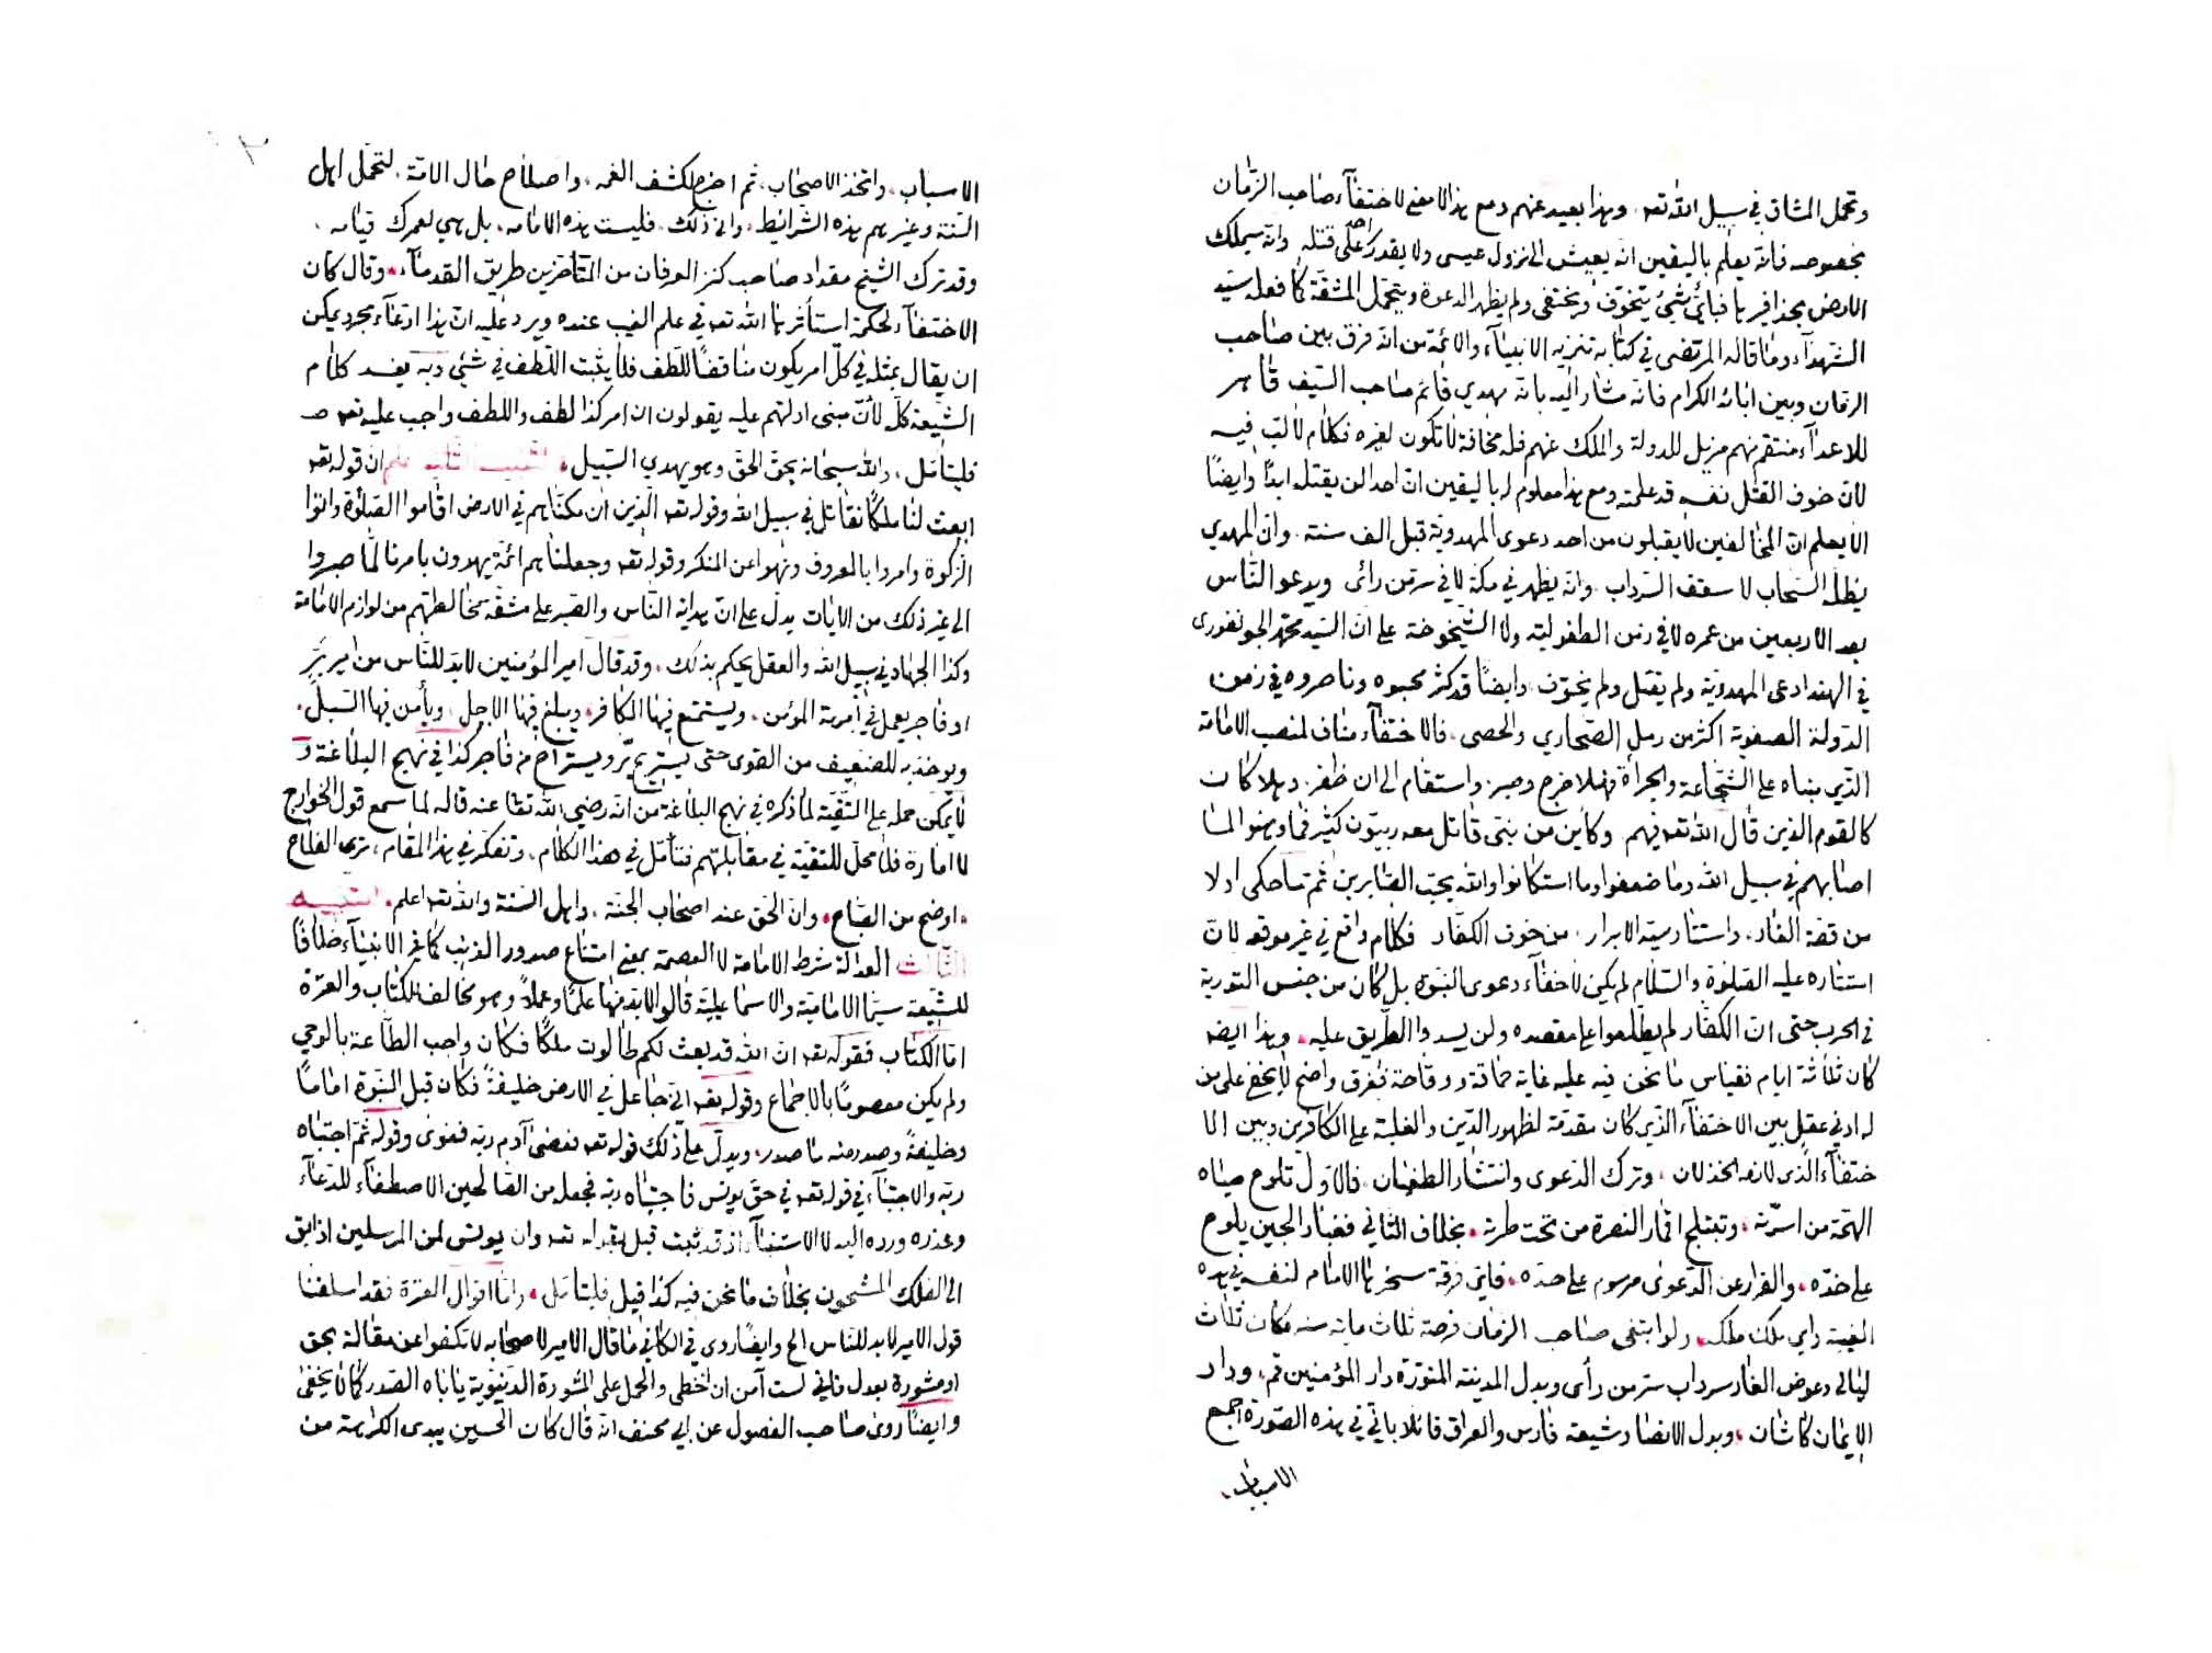 وتحمل المشاق في سبيل الله تعه . وهذا بعيد عنهم ومع هذا لا معنى لاختفآء صاحب الزمان
بخصوصه فانه يعلم باليقين انه يعيش الى نزول عيسى ولا يقدر احد على قتله وانه سيملك
الارض بحذافيرها فباي شيئ يتخوف ويختفي ولم يظهر الدعوة ويتحمل المشقة كما فعله سيد
الشهدآء وما قاله المرتضى في كتابه تنزيه الانبيآء والائمة من انه فرق بين صاحب
الزمان وبين ابائه الكرام فانه مشار اليه بانه مهدي قائم صاحب السيف قاهر
للاعدآء منتقم منهم مزيل للدولة والملك عنهم فله مخافة لا تكون لغيره فكلام لا لب فيه
لان خوف القتل نفسه قد علمته ومع هذا معلوم له باليقين ان احدا لن يقتله ابدا وايضا
الا يعلم ان المخالفين لا يقبلون من احد دعوى المهدوية قبل الف سنة . وان المهدي
يظله السحاب لا سقف السرداب . وانه يظهر في مكة لا في سر من رائى ويدعو الناس
بعد الاربعين من عمره لا في زمن الطفولية ولا الشيخوخة على ان السيد محمد الجونفوري
في الهند ادعى المهدوية ولم يقتل ولم يخوف . وايضا قد كثر محبوه وناصروه في زمن
الدولة الصفوية اكثر من رمل الصحاري والحصى . فالاختفآء مناف لمنصب الامامة
الذي مبناه على الشجاعة والجرأة فهلا خرج وصبر واستقام الى ان ظفر . وهلا كان
كالقوم الذين قال الله تعه فيهم وكاين من نبي قاتل معه ربيون كثير فما وهنوا لما
اصابهم في سبيل الله وما ضعفوا وما استكانوا والله يحب الصابرين ثم ما حكى اولا
من قصة الغار . واستتار سيد الابرار . من خوف الكفار فكلام واقع في غير موقعه لان
استتاره عليه الصلوة والسلام لم يكن لاخفآء دعوى النبوة بل كان من جنس التورية
في الحرب حتى ان الكفار لم يطلعوا على مقصده ولن يسدوا الطريق عليه . وهذا ايضه
كان ثلاثة ايام فقياس ما نحن فيه عليه غاية حماقة ووقاحة ففرق واضح لا يخفى على من
له ادنى عقل بين الاختفآء الذي كان مقدمة لظهور الدين والغلبة على الكافرين وبين الا
ختفآء الذي لازمه الخذلان . وترك الدعوى وانتشار الطغيان . فالاول تلوح مياه
الهمة من اسرته . وتبتلج اقمار النصرة من تحت طرته . بخلاف الثاني فغبار الجبن يلوح
على خده . والفرار عن الدعوى مرسوم على حده . فاين فرقة سخرها الامام لنفسه في هذه
الغيبة واي ملك ملكه . ولو ابتغى صاحب الزمان فرصة ثلاث مايه سنه مكان ثلاث
ليالي وعوض الغار سرداب سر من رأى وبدل المدينة المنورة دار المؤمنين قم . ودار
الايمان كاشان . وبدل الانصار شيعة فارس والعراق قائلا باني في هذه الصورة اجمع
الاسباب .
الاسباب . واتخذ الاصحاب . ثم اخرج لكشف الغمه . واصلاح حال الامة . لتحمل اهل
السنة وغيرهم هذه الشرائط . وان ذلك . فليست هذه الامامه . بل هي لعمرك قيامه .
وقد ترك الشيخ مقداد صاحب كنز العرفان من المتأخرين طريق القدمآء . وقال كان
الاختفآء لحكمة استأثرها الله تعه في علم الغيب عنده ويرد عليه ان هذا ادعآء مجرد يمكن
ان يقال بمثله في كل امر يكون مناقضا للطف فلا يثبت اللطف في شيئ وبه يفسد كلام
الشيعة كله لأن مبنى ادلتهم عليه يقولون ان امر كذا لطف واللطف واجب عليه تعه صـ
فليتأمل . والله سبحانه يحق الحق وهو يهدي السبيل . ان قوله تعه
ابعث لنا ملكا نقاتل في سبيل الله وقوله تعه الذين ان مكناهم في الارض اقاموا الصلوة واتوا
الزكوة وامروا بالمعروف ونهوا عن المنكر وقوله تعه وجعلناهم ائمة يهدون بامرنا لما صبروا
الى غير ذلك من الايات يدل على ان هداية الناس والصبر على مشقة مخالطتهم من لوازم الامامة
وكذا الجهاد في سبيل الله والعقل يحكم بذلك . وقد قال امير المؤمنين لا بد للناس من امير بر
او فاجر يعمل في امرته المؤمن . ويستمتع فيها الكافر . ويبلغ فيها الاجل . ويأمن فيها السبل .
ويوخذ به للضعيف من القوى حتى يستريح بر ويستراح من فاجر كذا في نهج البلاغة و
لا يمكن حمله على التقية لما ذكره في نهج البلاغة من انه رضي الله تعا عنه قاله لما سمع قول الخوارج
لا امارة فلا محل للتقية في مقابلتهم فتأمل في هذا الكلام . وتفكر في هذا المقام . ترى الفلاح
. اوضح من الصباح . وان الحق عند اصحاب الجنة . واهل السنة والله تعه اعلم . التنبيه
الثالث العدالة شرط الامامة لا العصمة بمعنى امتناع صدور الذنب كما في الانبيآء خلافا
للشيعة سيما الامامية والاسماعيلية قالوا لا بد منها علما وعملا وهو مخالف للكتاب والعترة
اما الكتاب فقوله تعه ان الله قد بعث لكم طالوت ملكا فكان واجب الطاعة بالوحي
ولم يكن معصوما بالاجماع وقوله تعه اني جاعل في الارض خليفة فكان قبل النبوة اماما
وخليفة وصدر منه ما صدر . ويدل على ذلك قوله تعه فعصى آدم ربه فغوى وقوله ثم اجتباه
ربه والاجتبآء في قوله تعه في حق يونس فاجتباه ربه فجعله من الصالحين الاصطفآء للدعآء
وعذره ورده اليه لا الاستنبآء اذ قد ثبت قبل بقوله تعه وان يونس لمن المرسلين اذ ابق
الى الفلك المشحون بخلاف ما نحن فيه كذا قيل فليتأمل . واما اقوال العترة فقد اسلفنا
قول الامير لا بد للناس الخ وايضا روى في الكافي ما قال الامير لاصحابه لا تكفوا عن مقالة بحق
او مشورة بعدل فاني لست آمن ان اخطى والحمل على المشورة الدنيوية ياباه الصدر كما لا يخفى
وايضا روى صاحب الفصول عن ابي مخنف انه قال كان الحسين يبدى الكراهة من